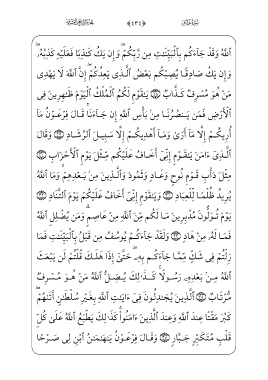 ٱللَّهُ وَقَدْ جَآءَكُم بِٱلْبَيِّنَٰتِ مِن رَّبِّكُمْ ۖ وَإِن يَكُ كَٰذِبًا فَعَلَيْهِ كَذِبُهُۥ ۖ
وَإِن يَكُ صَادِقًا يُصِبْكُم بَعْضُ ٱلَّذِى يَعِدُكُمْ ۖ إِنَّ ٱللَّهَ لَا يَهْدِى
مَنْ هُوَ مُسْرِفٌ كَذَّابٌ ٢٨ يَٰقَوْمِ لَكُمُ ٱلْمُلْكُ ٱلْيَوْمَ ظَٰهِرِينَ فِى
ٱلْأَرْضِ فَمَن يَنصُرُنَا مِنۢ بَأْسِ ٱللَّهِ إِن جَآءَنَا ۚ قَالَ فِرْعَوْنُ مَآ
أُرِيكُمْ إِلَّا مَآ أَرَىٰ وَمَآ أَهْدِيكُمْ إِلَّا سَبِيلَ ٱلرَّشَادِ ٢٩ وَقَالَ
ٱلَّذِىٓ ءَامَنَ يَٰقَوْمِ إِنِّىٓ أَخَافُ عَلَيْكُم مِّثْلَ يَوْمِ ٱلْأَحْزَابِ ٣٠
مِثْلَ دَأْبِ قَوْمِ نُوحٍ وَعَادٍ وَثَمُودَ وَٱلَّذِينَ مِنۢ بَعْدِهِمْ ۚ وَمَا ٱللَّهُ
يُرِيدُ ظُلْمًا لِّلْعِبَادِ ٣١ وَيَٰقَوْمِ إِنِّىٓ أَخَافُ عَلَيْكُمْ يَوْمَ ٱلتَّنَادِ ٣٢
يَوْمَ تُوَلُّونَ مُدْبِرِينَ مَا لَكُم مِّنَ ٱللَّهِ مِنْ عَاصِمٍ ۗ وَمَن يُضْلِلِ ٱللَّهُ
فَمَا لَهُۥ مِنْ هَادٍ ٣٣ وَلَقَدْ جَآءَكُمْ يُوسُفُ مِن قَبْلُ بِٱلْبَيِّنَٰتِ فَمَا
زِلْتُمْ فِى شَكٍّ مِّمَّا جَآءَكُم بِهِۦ ۖ حَتَّىٰٓ إِذَا هَلَكَ قُلْتُمْ لَن يَبْعَثَ
ٱللَّهُ مِنۢ بَعْدِهِۦ رَسُولًا ۚ كَذَٰلِكَ يُضِلُّ ٱللَّهُ مَنْ هُوَ مُسْرِفٌ
مُّرْتَابٌ ٣٤ ٱلَّذِينَ يُجَٰدِلُونَ فِىٓ ءَايَٰتِ ٱللَّهِ بِغَيْرِ سُلْطَٰنٍ أَتَىٰهُمْ ۖ
كَبُرَ مَقْتًا عِندَ ٱللَّهِ وَعِندَ ٱلَّذِينَ ءَامَنُوا۟ ۚ كَذَٰلِكَ يَطْبَعُ ٱللَّهُ عَلَىٰ كُلِّ
قَلْبِ مُتَكَبِّرٍ جَبَّارٍ ٣٥ وَقَالَ فِرْعَوْنُ يَٰهَٰمَٰنُ ٱبْنِ لِى صَرْحًا